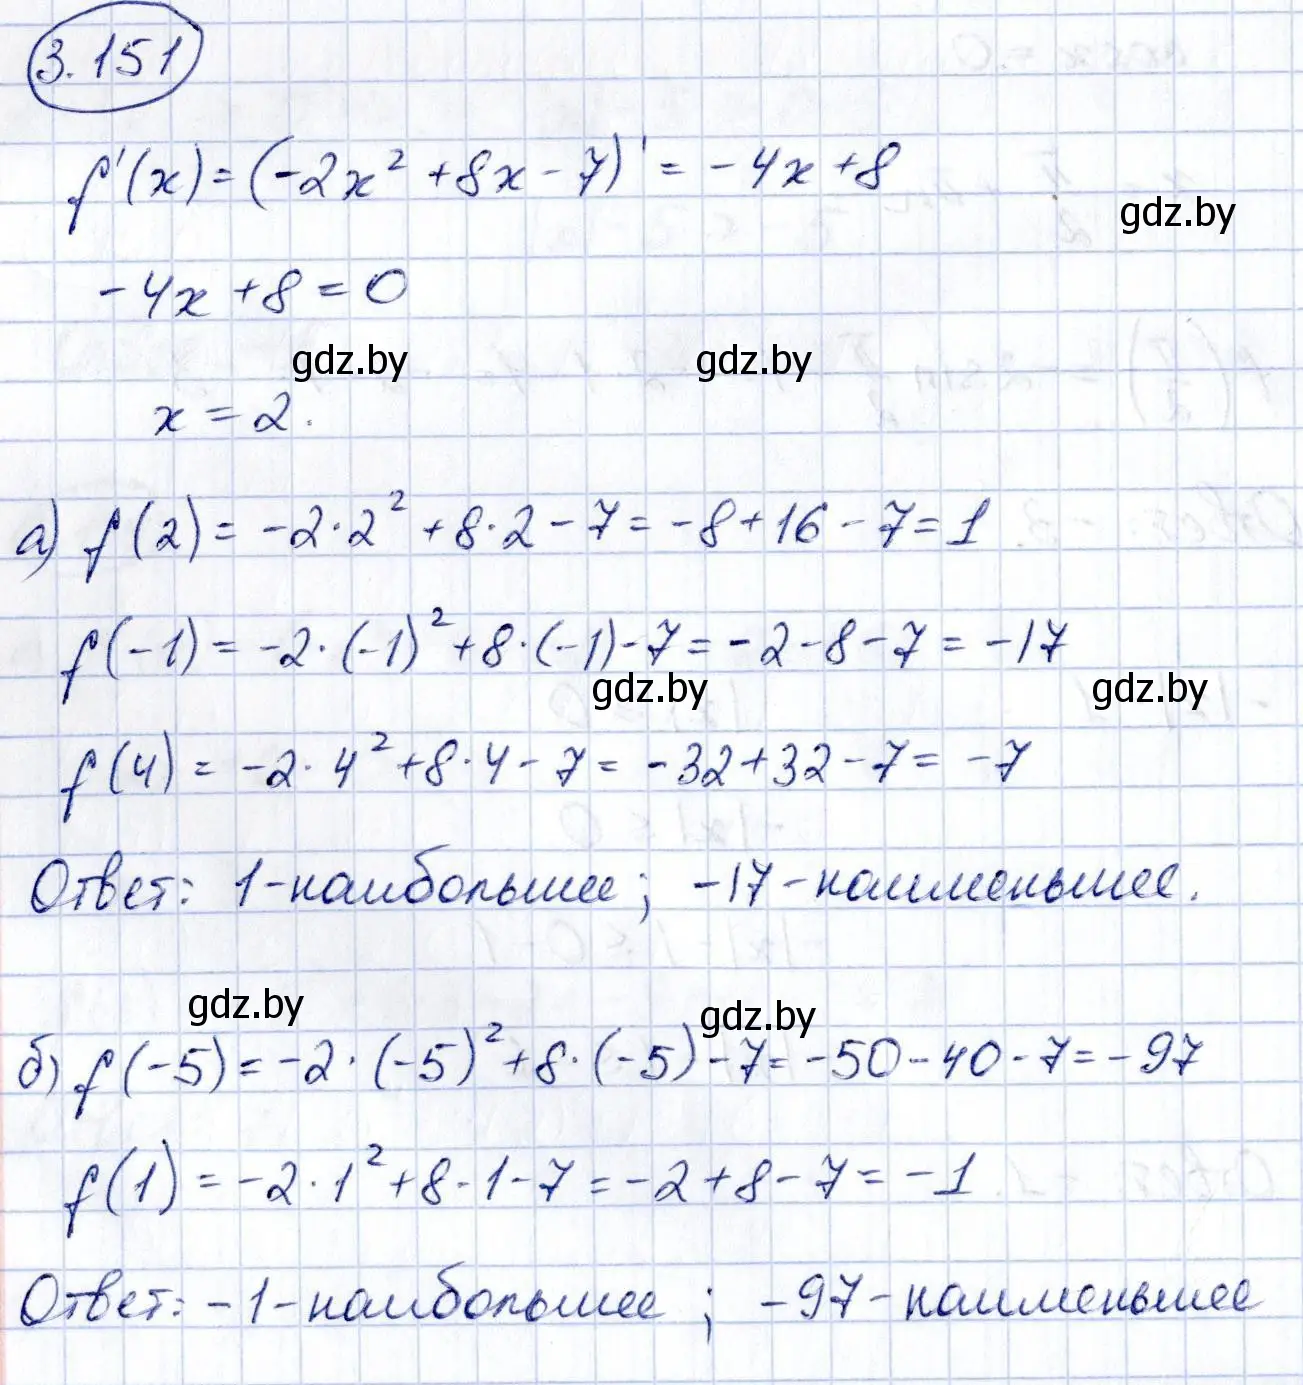 3.151
f'(x) = (-2x² + 8x - 7)' = -4x + 8
gdz.by
-4x + 8 = 0
gdz.by gdz.by
x = 2.
а) f(2) = -2·2² + 8·2 - 7 = -8 + 16 - 7 = 1
f(-1) = -2·(-1)² + 8·(-1) - 7 = -2 - 8 - 7 = -17
gdz.by gdz.by
f(4) = -2·4² + 8·4 - 7 = -32 + 32 - 7 = -7
Ответ: 1 - наибольшее; -17 - наименьшее.
gdz.by gdz.by
б) f(-5) = -2·(-5)² + 8·(-5) - 7 = -50 - 40 - 7 = -97
f(1) = -2·1² + 8·1 - 7 = -2 + 8 - 7 = -1
Ответ: -1 - наибольшее; -97 - наименьшее